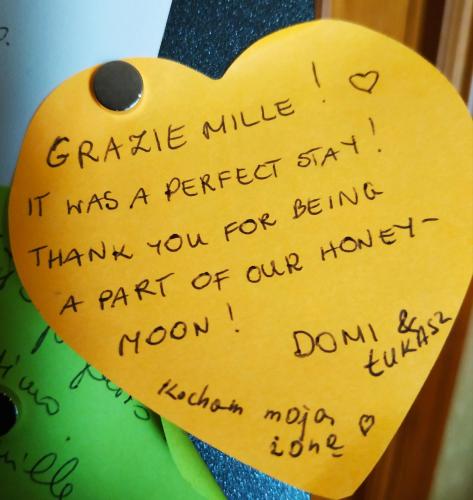 GRAZIE MILLE ! ♡
IT WAS A PERFECT STAY !
THANK YOU FOR BEING
A PART OF OUR HONEY-
MOON !
DOMI &
ŁUKASZ
Kocham moja
żonę ♡